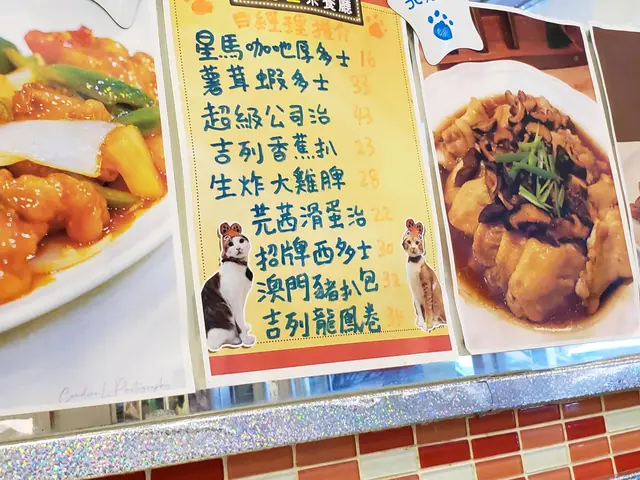 茶餐廳
日經理推介
星馬咖吔厚多士 16
薯茸蝦多士 33
超級公司治 43
吉列香蕉扒 23
生炸大雞髀 28
芫茜滑蛋治 22
招牌西多士 30
澳門豬扒包 32
吉列龍鳳卷 34